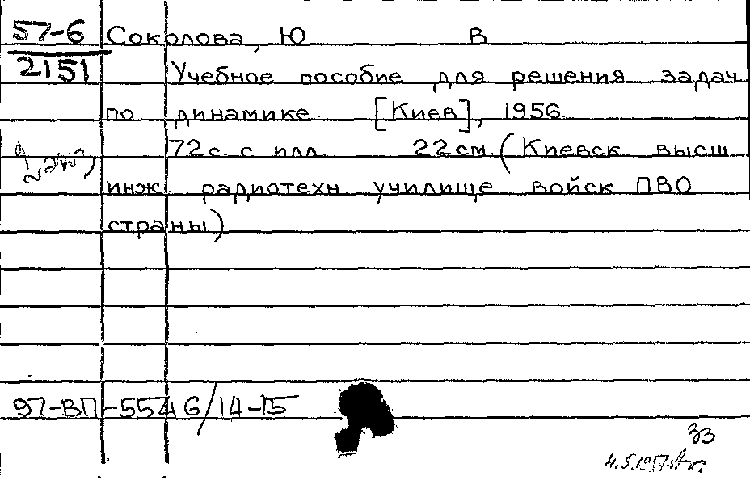 57-6 Соколова, Ю В
2151 Учебное пособие для решения задач
по динамике [Киев], 1956
72 с с илл 22 см (Киевск высш
инж радиотехн училище войск ПВО
страны)
97-ВП-5546/14-15
33